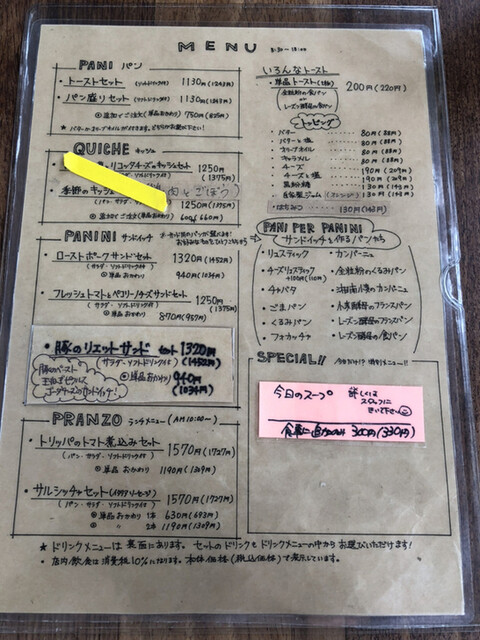 MENU 8:30~18:00
PANI パン
・トーストセット (ソフトドリンク付) 1130円(1243円)
・パン盛りセット (ソフトドリンク付) 1130円(1243円)
QUICHE キッシュ
リコッタチーズのキッシュセット 1250円
(1375円)
季節のキッシュ 肉とごぼう)
1250円(1375円)
600円 660円
PANINI サンドイッチ
・ローストポークサンドセット 1320円(1452円)
(サラダ・ソフトドリンク付)
単品おかわり 940円(1034円)
・フレッシュトマトとペコリーノチーズサンドセット
(サラダ・ソフトドリンク付) 1250円
(1375円)
単品おかわり 870円(957円)
・豚のリエットサンド セット 1320円
(サラダ・ソフトドリンク付) (1452円)
豚肉のペースト
単品おかわり 940円
(1034円)
PRANZO ランチメニュー (AM 10:00~)
・トリッパのトマト煮込みセット
(パン・サラダ・ソフトドリンク付) 1570円(1727円)
単品おかわり 1190円(1309円)
・サルシッチャセット(イタリアソーセージ)
(パン・サラダ・ソフトドリンク付) 1570円(1727円)
単品おかわり 1本 630円(693円)
2本 1190円(1309円)
いろんなトースト
・単品トースト(1枚)
全粒粉の食パン
or
レーズン酵母の食パン
200円(220円)
トッピング
・バター 80円(88円)
・バターと塩 80円(88円)
・オリーブオイル 80円(88円)
・キャラメル 80円(88円)
・チーズ 190円(209円)
・チーズと塩 190円(209円)
・黒糖 130円(143円)
・自家製ジャム 130円(143円)
・はちみつ 130円(143円)
PANI PER PANINI
サンドイッチを作るパンたち
・リュスティック
・カンパーニュ
・チーズリュスティック
+100円(110円)
・全粒粉のくるみパン
・チャバタ
・湘南小麦のカンパーニュ
・ごまパン
・小麦酵母のフランスパン
・くるみパン
・レーズン酵母のフランスパン
・フォカッチャ
・レーズン酵母の食パン
SPECIAL!! 今日だけ!? 特別メニュー!!
今日のスープ
詳しくは
スタッフに
きいて下さい
食事に追加のみ 300円(330円)
★ ドリンクメニューは裏面にあります。セットのドリンクもドリンクメニューの中からお選びいただけます!
・店内飲食は消費税10%になります。本体価格(税込価格)で表示しています。